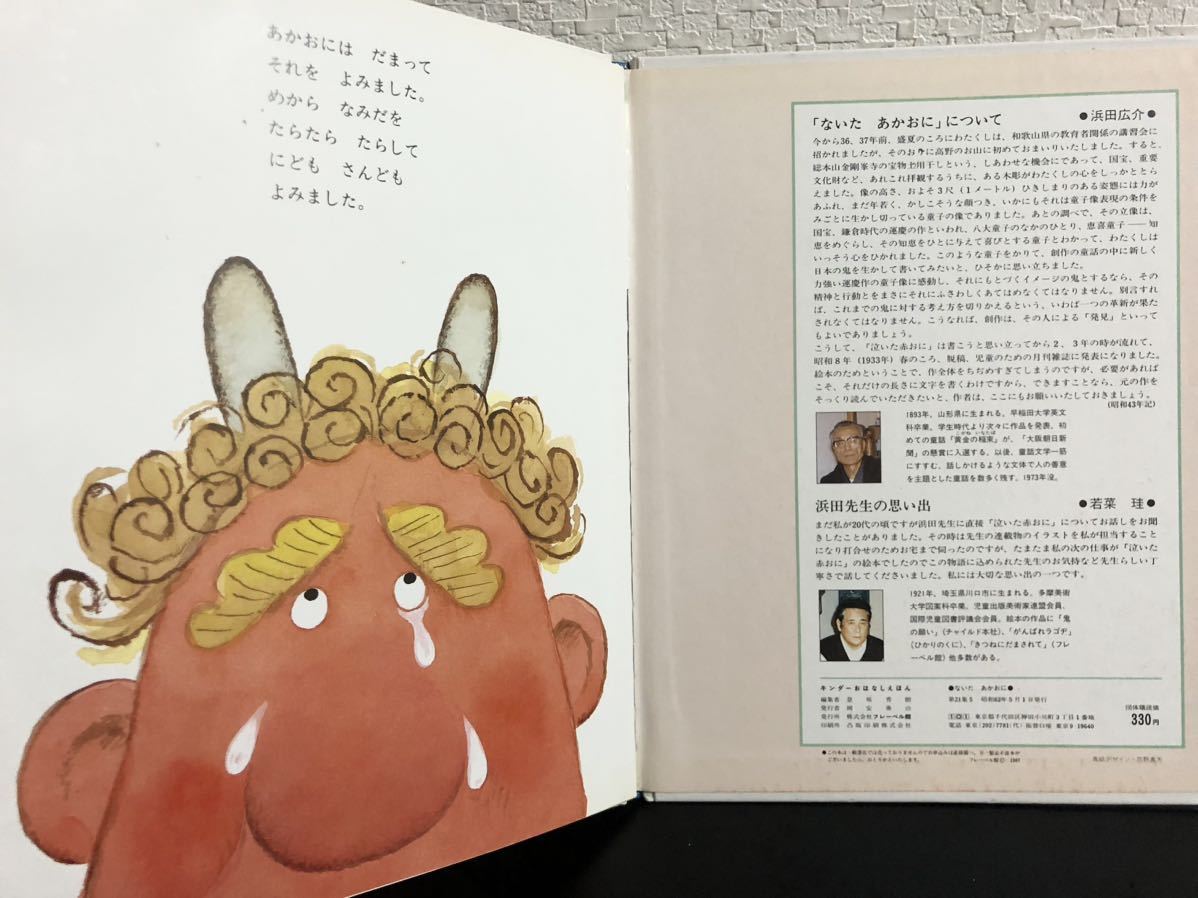 あかおには だまって
それを よみました。
めから なみだを
たらたら たらして
にども さんども
よみました。
「ないた あかおに」について ●浜田広介●
今から36、37年前、盛夏のころにわたくしは、和歌山県の教育者関係の講習会に
招かれましたが、そのおりに高野のお山に初めておまいりいたしました。すると、
総本山金剛峯寺の宝物土用干しという、しあわせな機会にであって、国宝、重要
文化財など、あれこれ拝観するうちに、ある木彫がわたくしの心をしっかととら
えました。像の高さ、およそ3尺(1メートル)ひきしまりのある姿態には力が
あふれ、まだ年若く、かしこそうな顔つき、いかにもそれは童子像表現の条件を
みごとに生かし切っている童子の像でありました。あとの調べで、その立像は、
国宝、鎌倉時代の運慶の作といわれ、八大童子のなかのひとり、恵喜童子――知
恵をめぐらし、その知恵をひとに与えて喜びとする童子とわかって、わたくしは
いっそう心をひかれました。このような童子をかりて、創作の童話の中に新しく
日本の鬼を生かして書いてみたいと、ひそかに思い立ちました。
力強い運慶作の童子像に感動し、それにもとづくイメージの鬼とするなら、その
精神と行動とをまさにそれにふさわしくあてはめなくてはなりません。別言すれ
ば、これまでの鬼に対する考え方を切りかえるという、いわば一つの革新が果た
されなくてはなりません。こうなれば、創作は、その人による「発見」といって
もよいでありましょう。
こうして、「泣いた赤おに」は書こうと思い立ってから2、3年の時が流れて、
昭和8年(1933年)春のころ、脱稿、児童のための月刊雑誌に発表になりました。
絵本のためということで、作全体をちぢめすぎてしまうのですが、必要があれば
こそ、それだけの長さに文字を書くわけですから、できますことなら、元の作を
そっくり読んでいただきたいと、作者は、ここにもお願いいたしておきましょう。
(昭和43年記)
1893年、山形県に生まれる。早稲田大学英文
科卒業。学生時代より次々に作品を発表、初
めての童話『黄金の稲束』が、「大阪朝日新
聞」の懸賞に入選する。以後、童話文学一筋
にすすむ。話しかけるような文体で人の善意
を主題とした童話を数多く残す。1973年没。
浜田先生の思い出 ●若菜 珪●
まだ私が20代の頃ですが浜田先生に直接「泣いた赤おに」についてお話しをお聞
きしたことがありました。その時は先生の連載物のイラストを私が担当すること
になり打合せのためお宅まで伺ったのですが、たまたま私の次の仕事が「泣いた
赤おに」の絵本でしたのでこの物語に込められた先生のお気持など先生らしい丁
寧さで話してくださいました。私には大切な思い出の一つです。
1921年、埼玉県川口市に生まれる。多摩美術
大学図案科卒業。児童出版美術家連盟会員、
国際児童図書評議会会員。絵本の作品に「鬼
の願い」(チャイルド本社)、「がんばれラゴヂ」
(ひかりのくに)、「きつねにだまされて」(フレ
ーベル館)他多数がある。
キンダーおはなしえほん ●ないた あかおに●
編集者 第21集5 昭和62年5月1日発行
発行者 団体購読価
発行所 株式会社フレーベル館 101 東京都千代田区神田小川町3丁目1番地 330円
印刷所 凸版印刷株式会社 電話 東京(292)7781(代) 振替口座 東京9-19640
フレーベル館© 1987